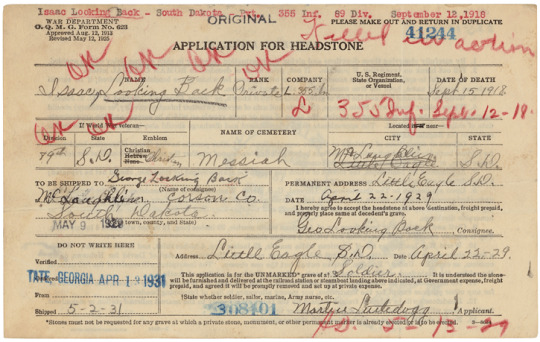 Isaac Looking Back - South Dakota Pvt. 355 Inf. 89 Div. September 12, 1918
WAR DEPARTMENT
O. Q. M. G. Form No. 623
Approved Aug. 12, 1913
Revised May 12, 1925
ORIGINAL
PLEASE MAKE OUT AND RETURN IN DUPLICATE
41244
Killed in action
APPLICATION FOR HEADSTONE
OK OK OK OK
NAME RANK COMPANY U. S. Regiment, State Organization, or Vessel DATE OF DEATH
Isaac Looking Back Private L. 355 In Sept 15 1918
L 355 Inf. Sept. 12-18.
OK OK
If World War Veteran—
Division State Emblem
NAME OF CEMETERY
Located in or near—
CITY STATE
79th S.D. Christian Hebrew None Christian Messiah
Mc Laughlin
Little Eagle S.D.
TO BE SHIPPED TO George Looking Back
(Name of consignee)
Mc Laughlin Corson Co.
South Dakota
(town, county, and State)
MAY 9 1929
PERMANENT ADDRESS Little Eagle S.D.
DATE April 22-1929
I hereby agree to accept the headstone at above destination, freight prepaid,
and properly place same at decedent's grave.
Geo Looking Back Consignee.
DO NOT WRITE HERE
Verified
TATE, GEORGIA APR 19 1931
From
Shipped 5-2-31
Address Little Eagle S.D. Date April 22-29.
This application is for the UNMARKED* grave of a† Soldier. It is understood the stone
will be furnished and delivered at the railroad station or steamboat landing above indicated, at Government expense, freight
prepaid, and agreed it will be promptly removed and set up at private expense.
†State whether soldier, sailor, marine, Army nurse, etc.
308101
Martin Applicant.
*Stones must not be requested for any grave at which a private stone, monument, or other permanent marker is already erected or is to be erected.
5-13-29